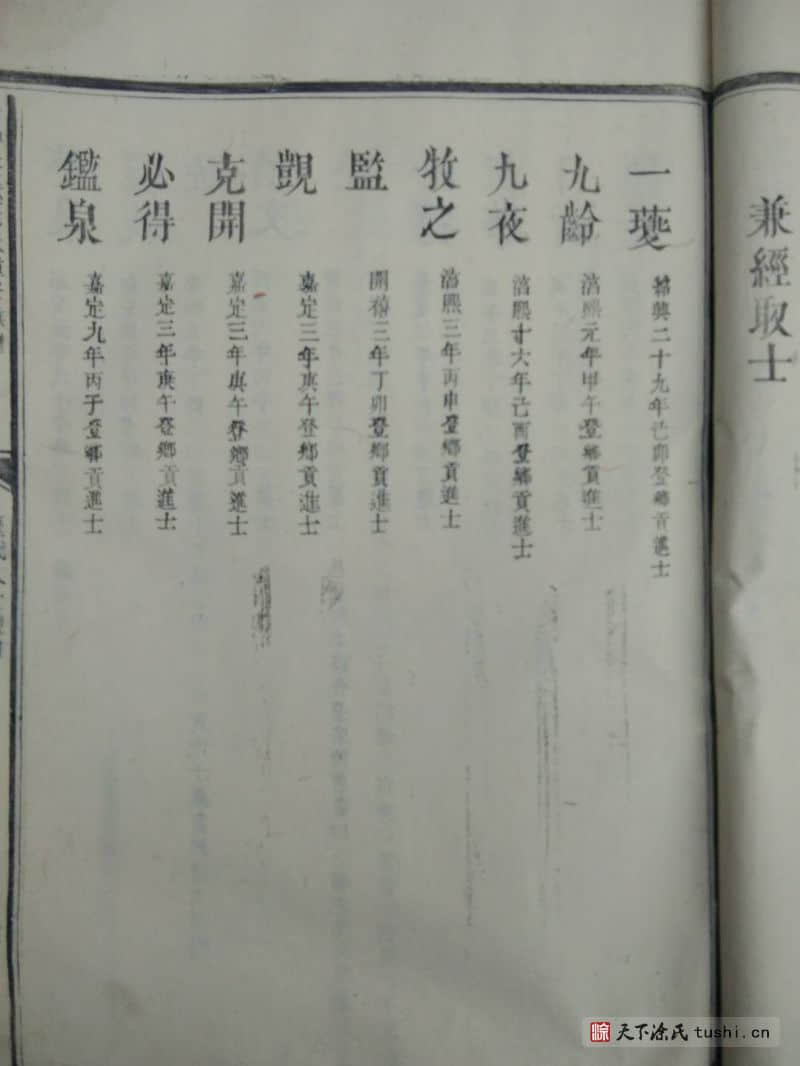 兼經取士
一夔 紹興二十九年己卯登鄉貢進士
九齡 淳熙元年甲午登鄉貢進士
九夜 淳熙十六年己酉登鄉貢進士
牧之 淳熙三年丙申登鄉貢進士
監 開禧三年丁卯登鄉貢進士
覬 嘉定三年庚午登鄉貢進士
克開 嘉定三年庚午登鄉貢進士
必得 嘉定三年庚午登鄉貢進士
鑑泉 嘉定九年丙子登鄉貢進士
天下涂氏 tushi.cn